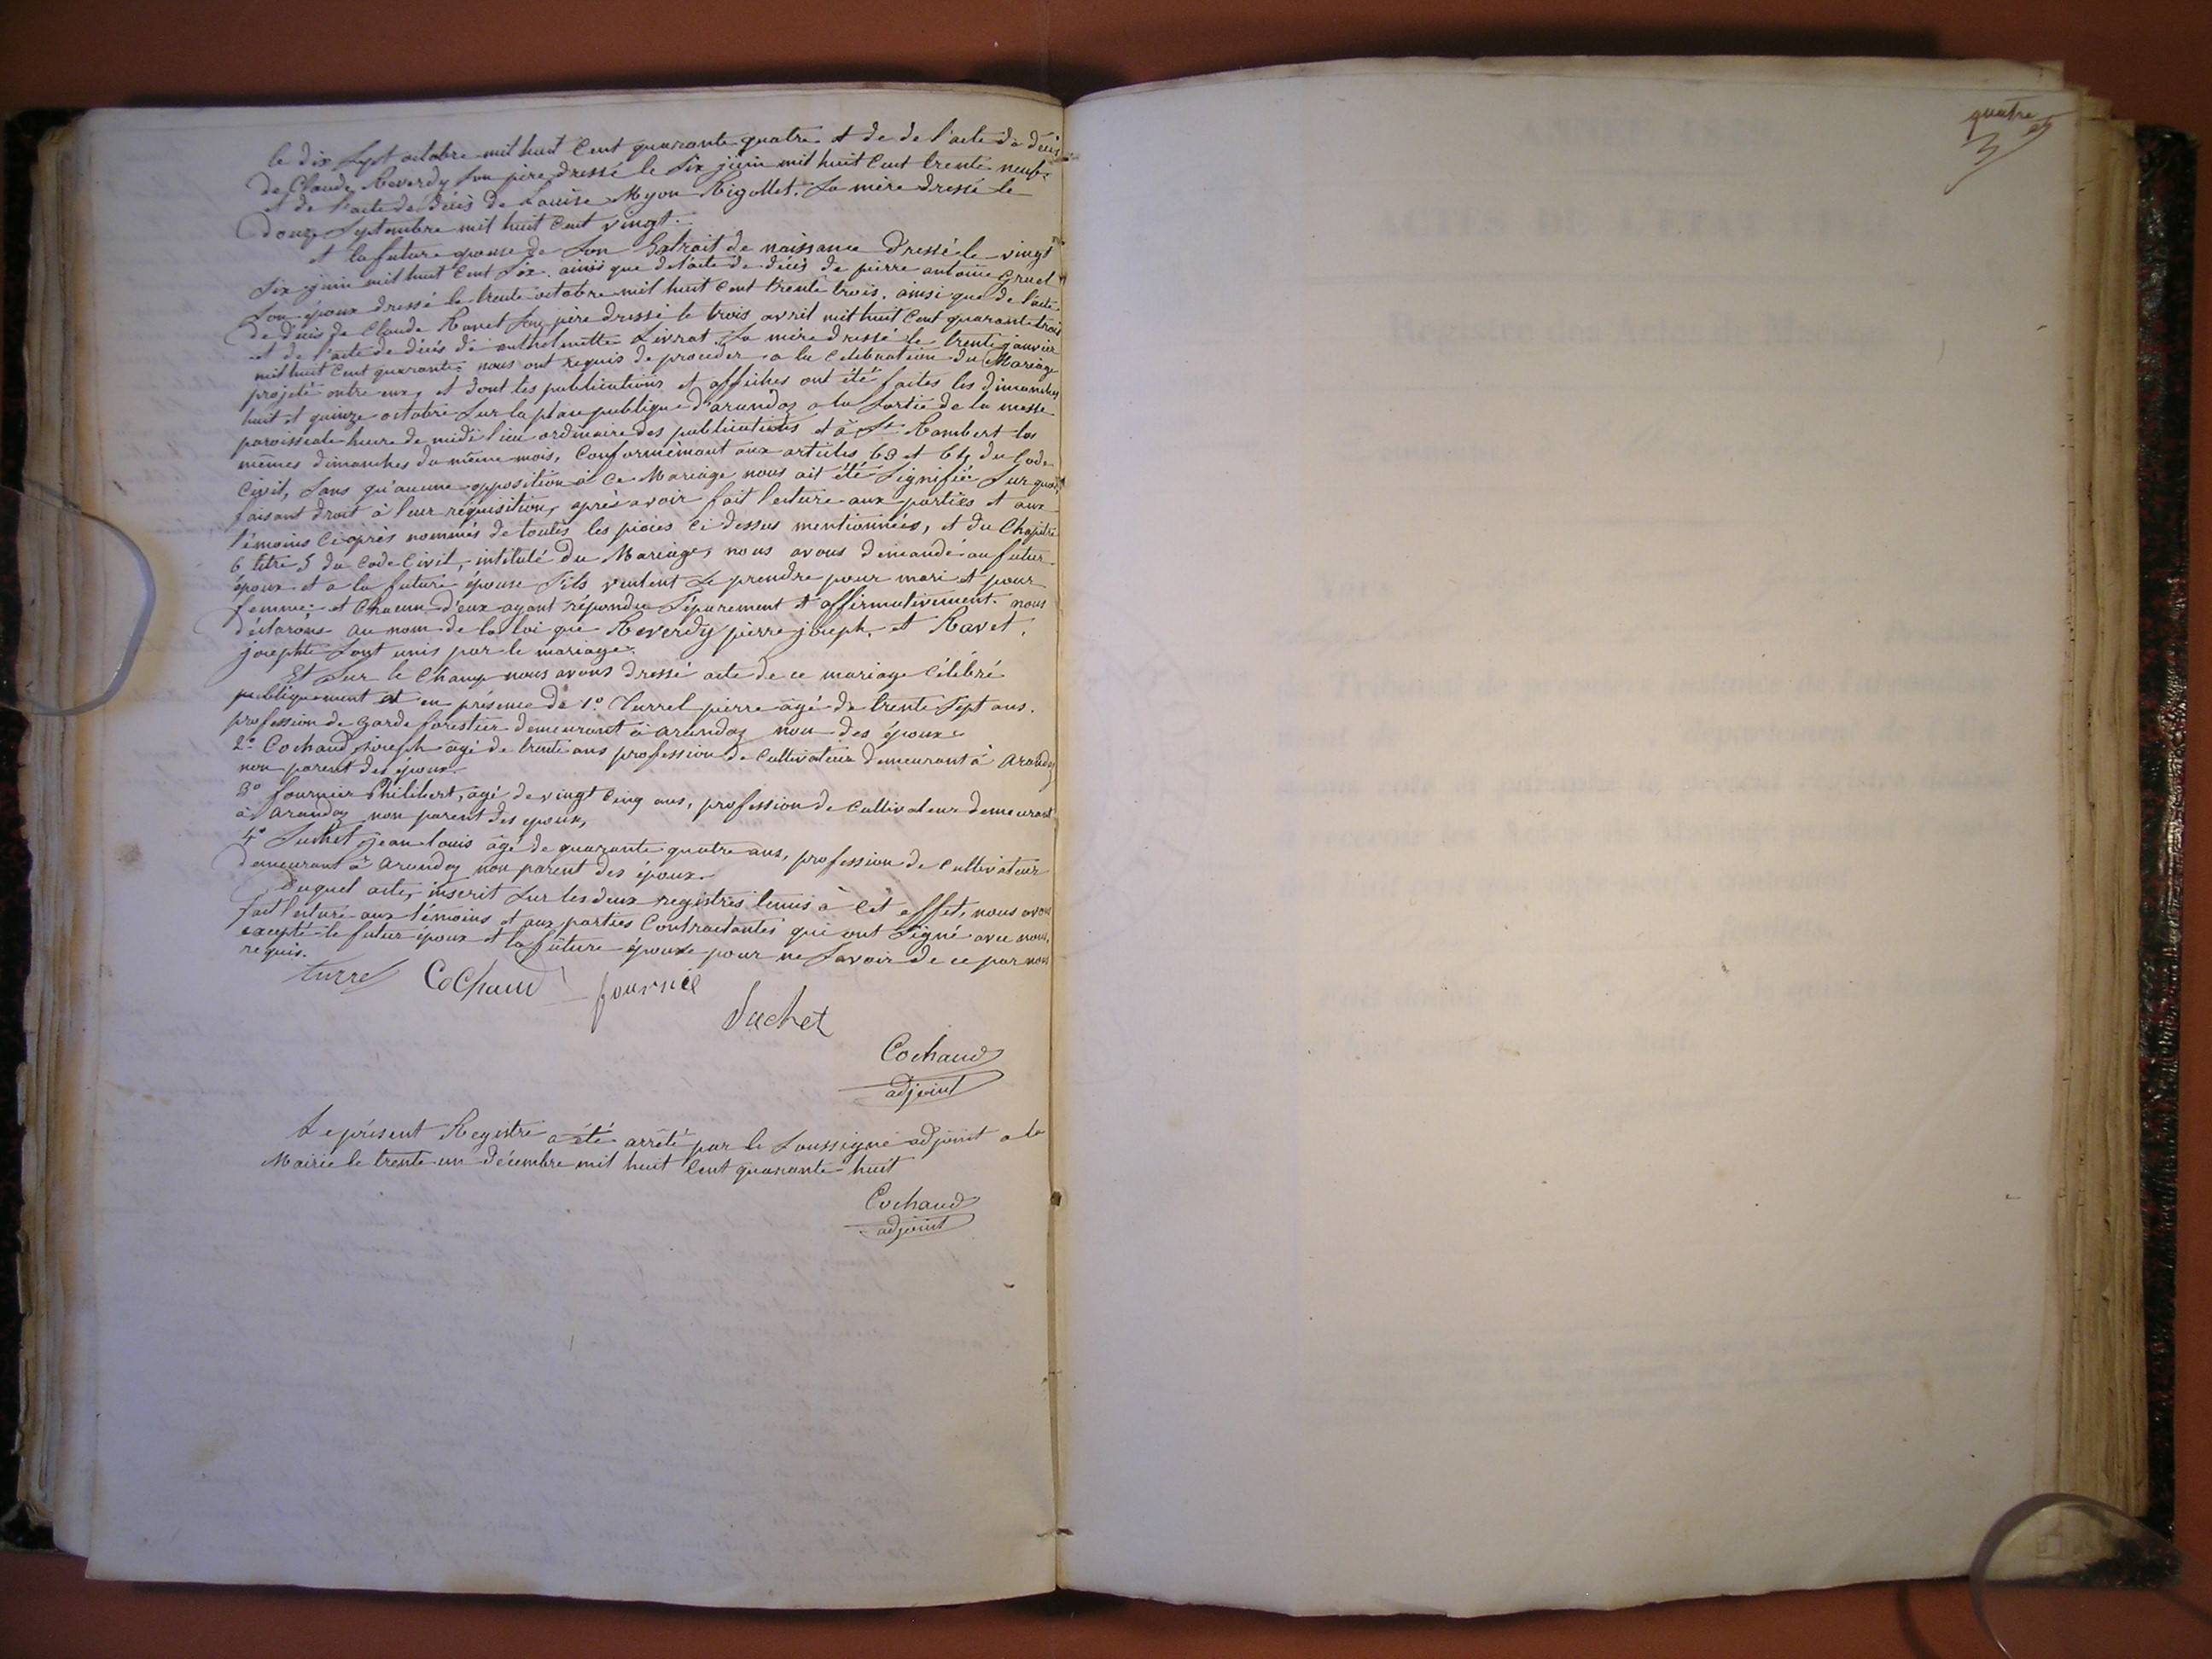 le dix Sept octobre mil huit Cent quarante quatre et de de l'acte de décis
de Claude Reverdy Son père dressé le Six juin mil huit Cent trente neuf.
et de l'acte de décis de Louise Myon Rigollet. Sa mère dressé le
douze Septembre mil huit Cent vingt.
et la future épouse de Son Extrait de naissance dressé le vingt
Six juin mil huit Cent Six. ainsi que de l'acte de décis de pierre antoine Gruel
Son époux dressé le trente octobre mil huit Cent trente trois. ainsi que de l'acte
de décis de Claude Ravet Son père dressé le trois avril mil huit Cent quarante trois
et de l'acte de décés de anthelmette Livrat. Sa mère dressé le trente janvier
mil huit Cent quarante. nous ont requis de proceder a la Celebration du Mariage
projeté entre eux, et dont les publications et affiches ont été faites les dimanches
huit et quinze octobre Sur la place publique d'arandaz a la Sortie de la messe
paroissiale heure de midi lieu ordinaire des publications et à St Rambert les
mêmes dimanches du même mois, Conformément aux articles 63 et 64 du Code
Civil, Sans qu'aucune opposition à Ce Mariage nous ait été Signifiée Sur quoi,
faisant droit à leur réquisition, après avoir fait lecture aux parties et aux
témoins Ci après nommés de toutes les pièces Ci dessus mentionnées, et du Chapitre
6 titre 5 du Code Civil, intitulé Du Mariage, nous avons demandé au futur
époux et a la future épouse S'ils veulent Se prendre pour mari et pour
femme. et Chacun d'eux ayant répondu Séparement et affirmativement. nous
déclarons au nom de la loi que Reverdy pierre joseph. et Ravet.
josephte Sont unis par le mariage.
Et Sur le Champ nous avons dressé acte de ce mariage Célébré
publiquement et en présence de 1º Turrel pierre âgé de trente Sept ans.
profession de garde forestier demeurant à arandaz non des époux.
2º Cochaud joseph âgé de trente ans profession de Cultivateur demeurant à Arandaz
non parent des époux.
3º fournier Philibert, agé de vingt Cinq ans, profession de Cultivateur demeurant
à Arandaz non parent des epoux,
4º Suchet jean louis âgé de quarante quatre ans, profession de Cultivateur
demeurant à Arandaz non parent des époux.
Duquel acte, inscrit Sur les deux registres tenus à Cet effet, nous avons
fait lecture aux témoins et aux parties Contractantes qui ont Signé avec nous,
excepté le futur époux et la future épouse pour ne Savoir de ce par nous
requis.
turrel Cochaud fournié
Suchet
Cochaud
adjoint
Le présent Registre a été arrêté par le Soussigné adjoint a la
Mairie le trente un décembre mil huit Cent quarante huit
Cochaud
adjoint
quatre